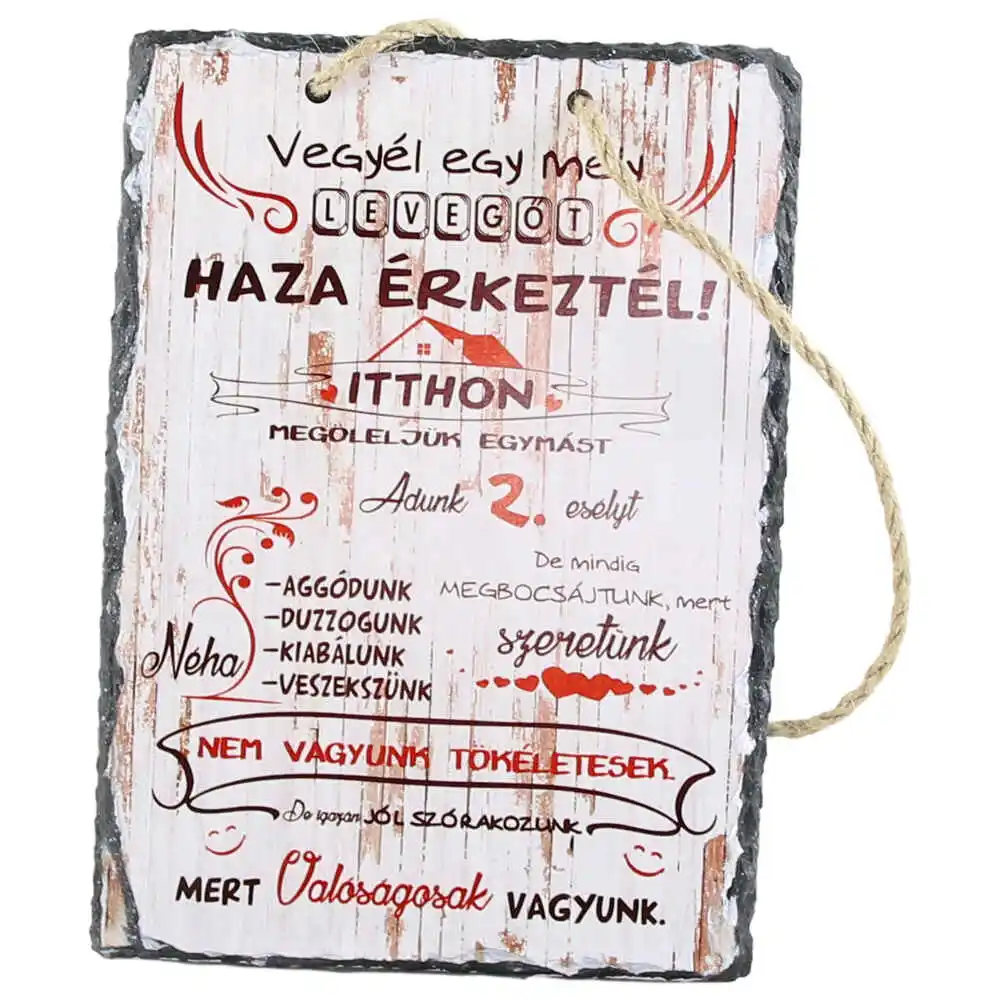 Vegyél egy mély
LEVEGŐT
HAZA ÉRKEZTÉL!
ITTHON
MEGÖLELJÜK EGYMÁST
Adunk 2. esélyt
De mindig
MEGBOCSÁJTUNK, mert
szeretünk
Néha
-AGGÓDUNK
-DUZZOGUNK
-KIABÁLUNK
-VESZEKSZÜNK
NEM VAGYUNK TÖKÉLETESEK.
De igazán JÓL SZÓRAKOZUNK
MERT Valóságosak VAGYUNK.